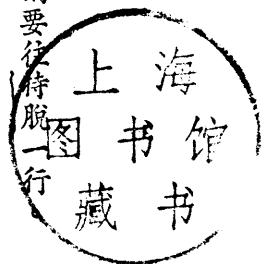 上海
图书馆
藏书
要往待脫一行